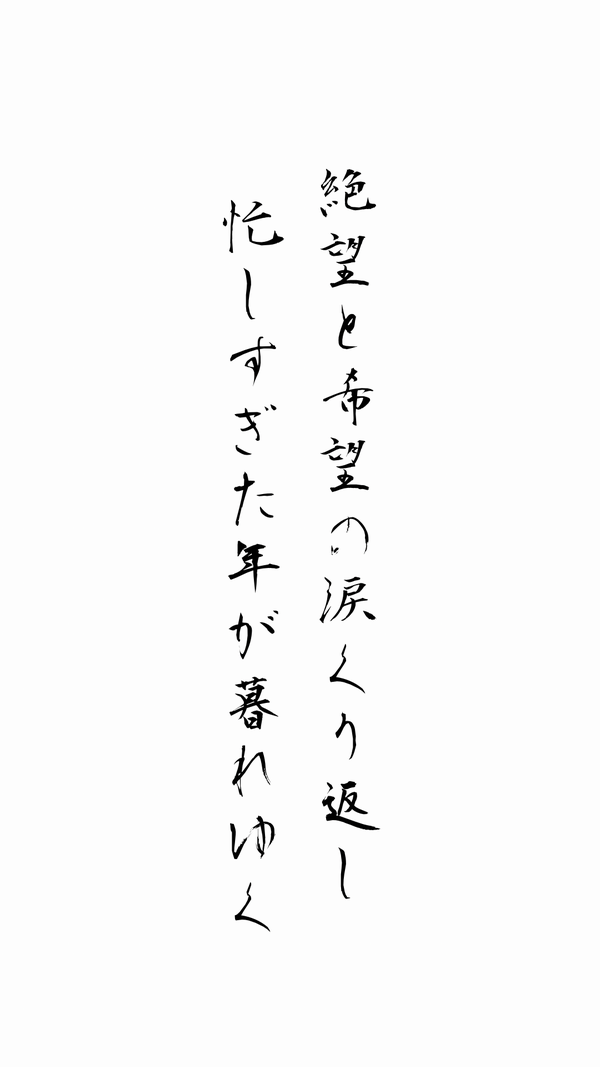 絶望と希望の涙くり返し
忙しすぎた年が暮れゆく